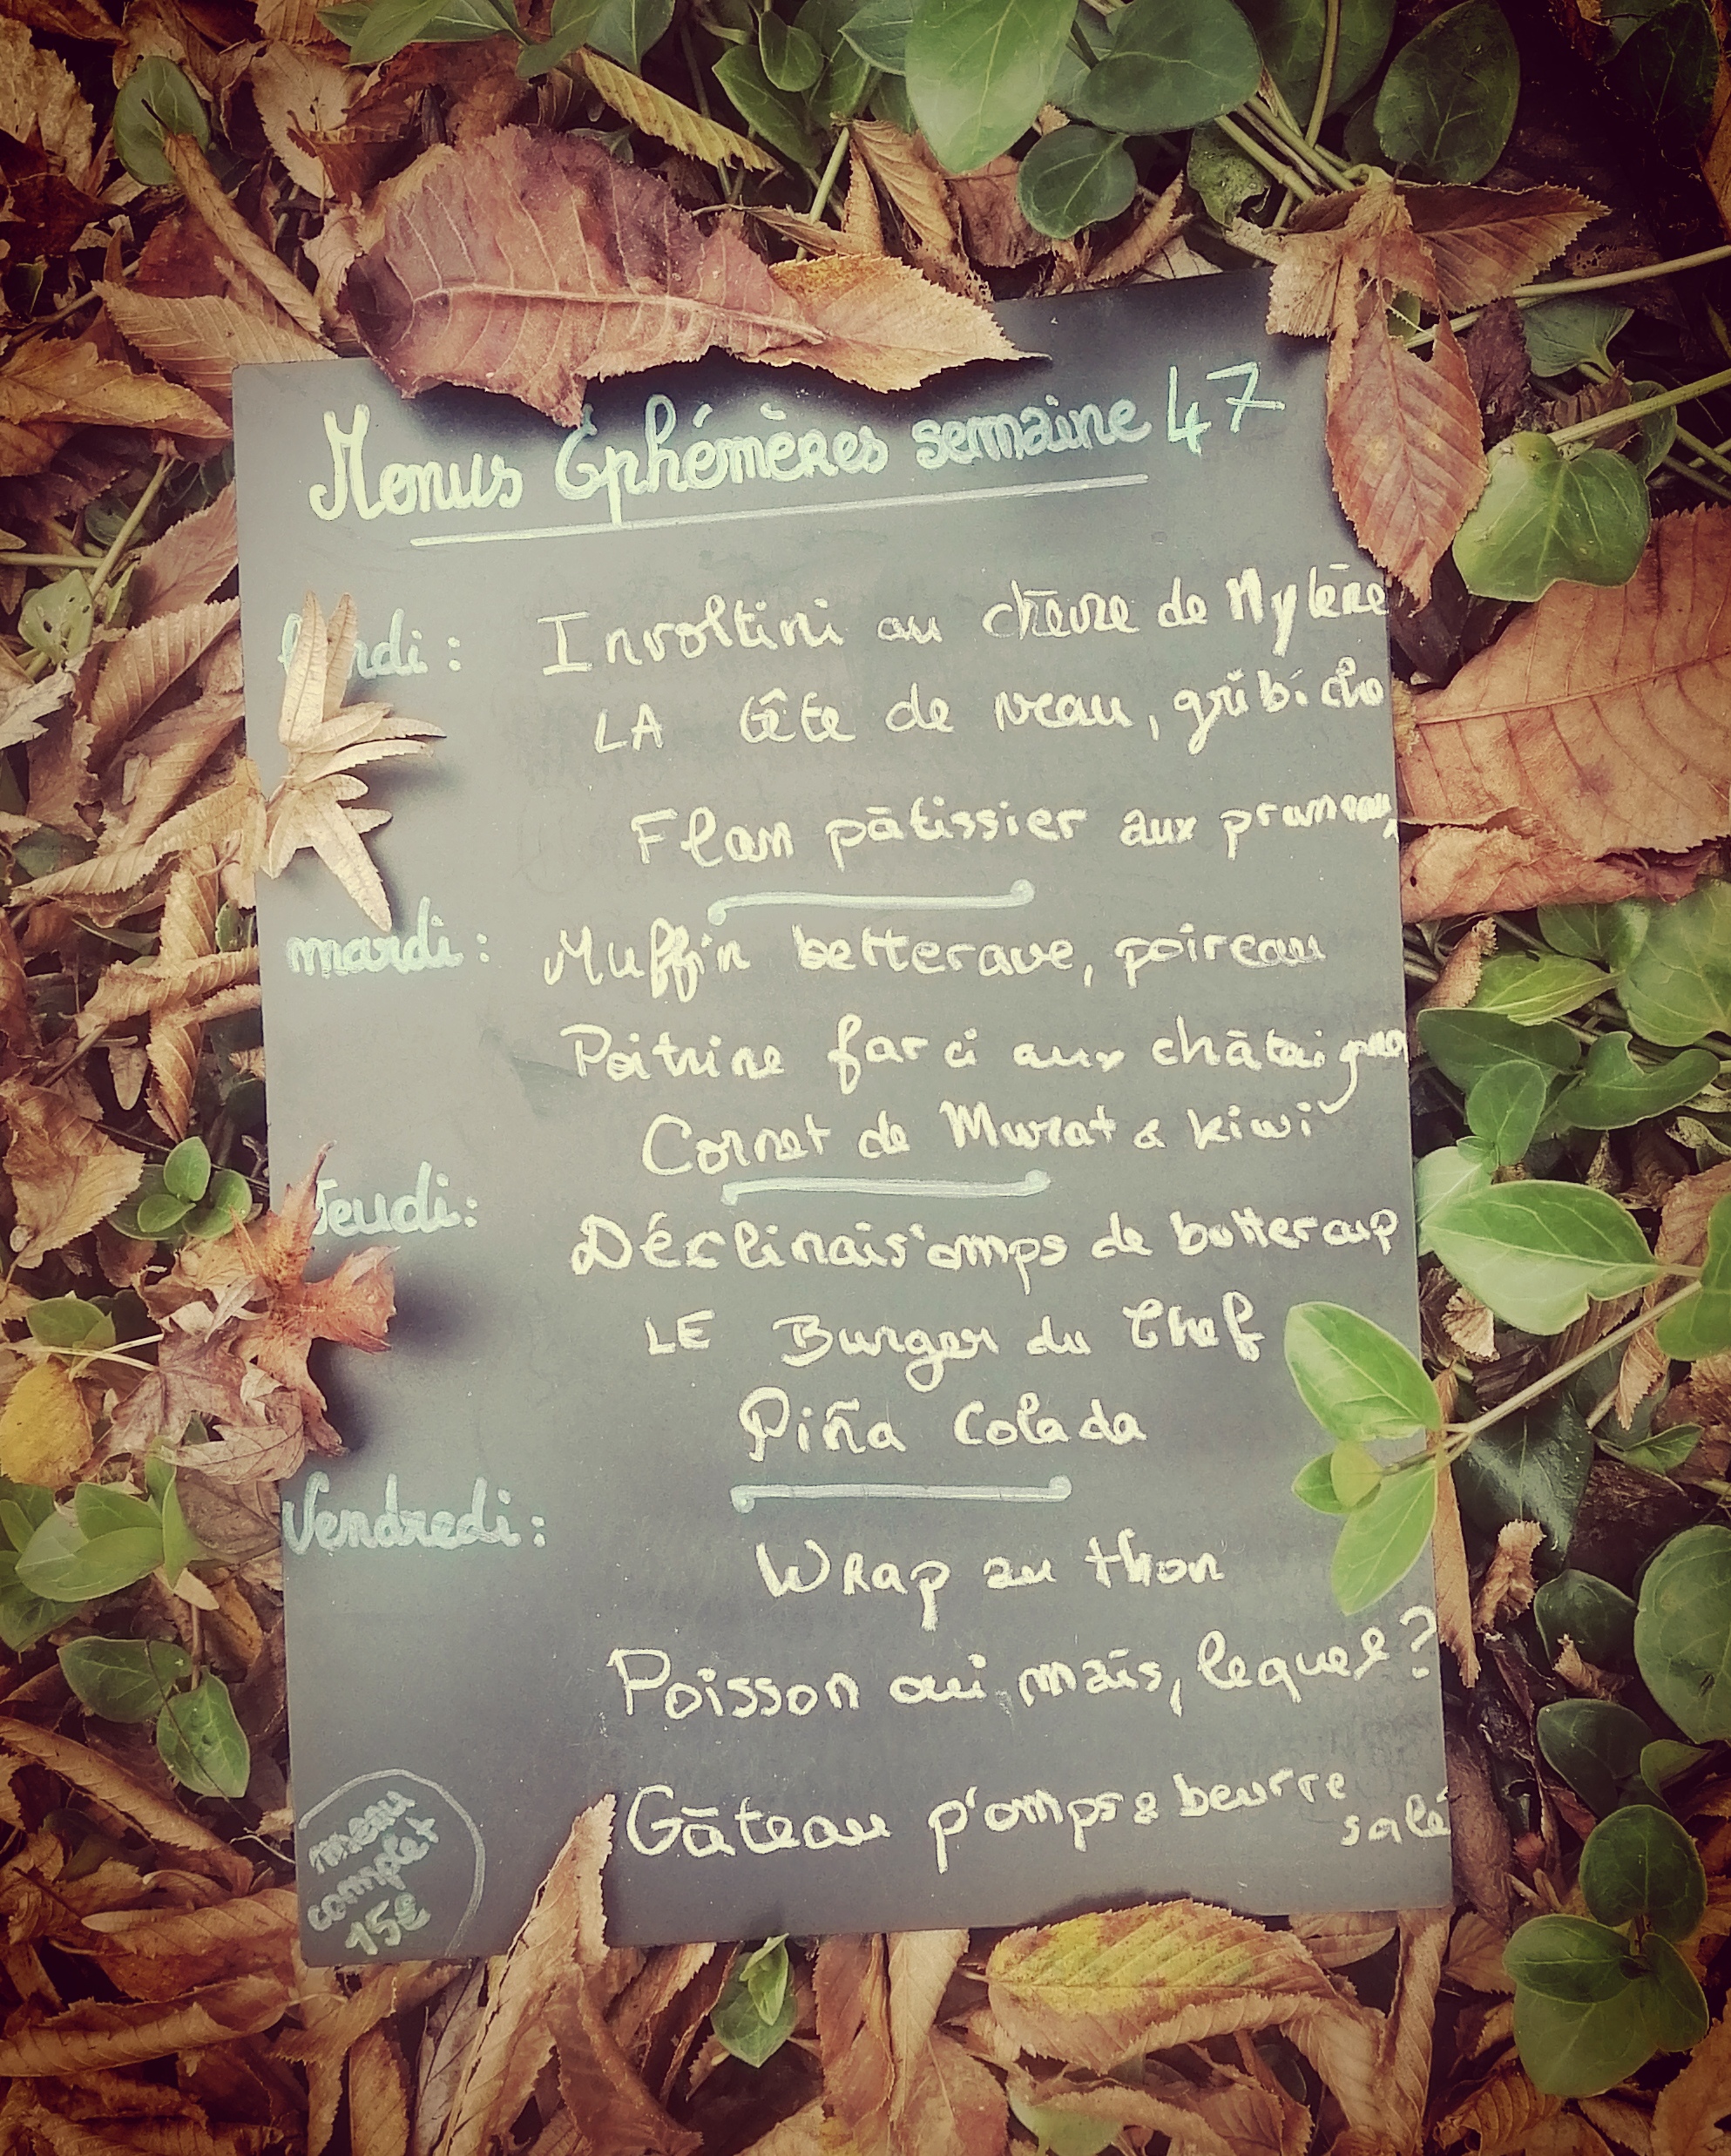 Menus Éphémères semaine 47
lundi : Involtini au chèvre de Mylène
LA tête de veau, gribiche
Flan pâtissier aux pruneaux
mardi : Muffin betterave, poireau
Poitrine farci aux châtaignes
Cornet de Murat & kiwi
Jeudi : Déclinais'omps de buttercup
LE Burger du Chef
Piña Colada
Vendredi :
Wrap au thon
Poisson oui, mais, lequel ?
Gâteau p'omps & beurre
salé
menu
complet
15€